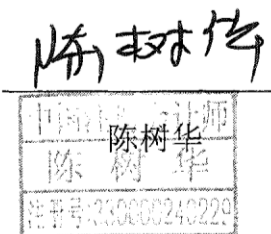 陈树华
中国注册会计师
陈树华
陈树华
注册号:330000240229